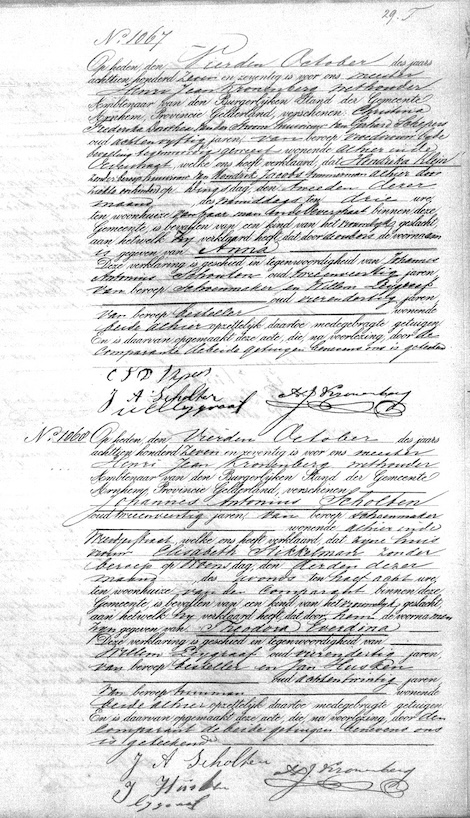 29. F
No. 1067
Op heden, den Vierden October des jaars
achttien honderd zeven en zeventig is voor ons meester
Henri Jean Kronenberg wethouder
Ambtenaar van den Burgerlijken Stand der Gemeente
Arnhem, Provincie Gelderland, verschenen Christina
oud achtenvijftig jaren, van beroep Vroedvrouw
wonende alhier in de
welke ons heeft verklaard, dat Hendrika
huisvrouw van Hendrik Jacobs timmerman alhier door
op Dingsdag, den tweeden dezer
maand des middags ten drie ure,
ten woonhuize van haar man binnen deze
Gemeente, is bevallen van een kind van het vrouwelijk geslacht,
aan hetwelk zij verklaard heeft, dat door de voornaam
is gegeven van Anna
Deze verklaring is geschied in tegenwoordigheid van Johannes
Antonius Scholten oud tweeenveertig jaren,
van beroep Schoenmaker en Willem Lijgraaf
oud vierendertig jaren,
van beroep besteller wonende
beide alhier opzettelijk daartoe medegebragte getuigen
En is daarvan opgemaakt deze acte, die, na voorlezing, door de
Comparante de beide getuigen benevens ons is geteekend
J A Scholten
W Lygraaf
H J Kronenberg
No. 1068
Op heden, den Vierden October des jaars
achttien honderd zeven en zeventig is voor ons meester
Henri Jean Kronenberg wethouder
Ambtenaar van den Burgerlijken Stand der Gemeente
Arnhem, Provincie Gelderland, verschenen
Johannes Antonius Scholten
oud tweeenveertig jaren, van beroep Schoenmaker
wonende alhier in de
straat, welke ons heeft verklaard, dat zijne huis
vrouw Elisabeth Stikkelman zonder
beroep op Woensdag, den derden dezer
maand des avonds ten half acht ure,
ten woonhuize van den Comparant binnen deze
Gemeente, is bevallen van een kind van het vrouwelijk geslacht,
aan hetwelk hij verklaard heeft, dat door hem de voornamen
van gegeven van Theodora Everdina
Deze verklaring is geschied in tegenwoordigheid van
Willem Lijgraaf oud vierendertig jaren,
van beroep besteller en Jan Husken
oud achtentwintig jaren,
van beroep wonende
beide alhier opzettelijk daartoe medegebragte getuigen
En is daarvan opgemaakt deze acte, die, na voorlezing, door den
Comparant de beide getuigen benevens ons
is geteekend
J A Scholten
J Husken
Lygraaf
H J Kronenberg